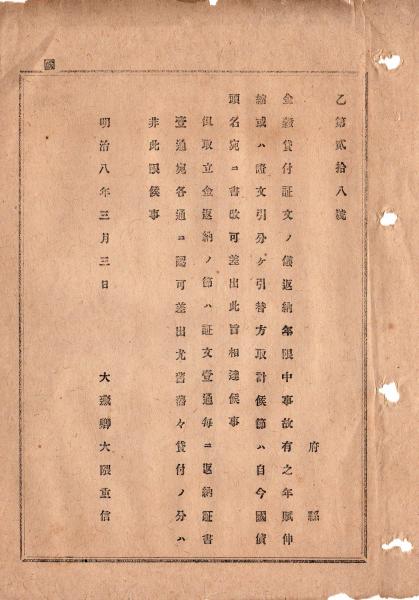 國
乙第貳拾八號
府縣
金穀貸付証文ノ儀返納年限中事故有之年賦伸
縮或ハ證文引分ケ引替方取計候節ハ自今國債
頭名宛ニ書改可差出此旨相達候事
但取立金返納ノ節ハ証文壹通毎ニ返納証書
壹通宛各通ニ認可差出尤舊藩々貸付ノ分ハ
非此限候事
明治八年三月三日
大藏卿大隈重信